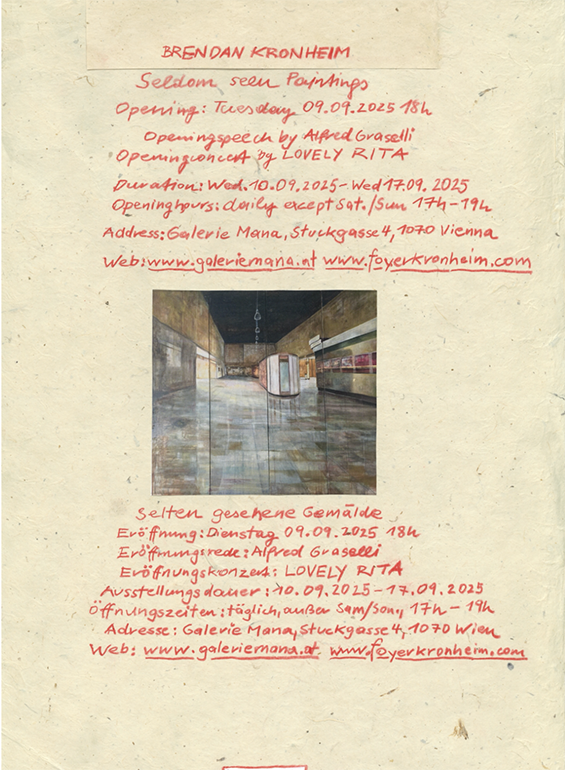 BRENDAN KRONHEIM
Seldom seen Paintings
Opening: Tuesday 09.09.2025 18h
Openingspeech by Alfred Graselli
Openingconcert by LOVELY RITA
Duration: Wed. 10.09.2025 - Wed 17.09. 2025
Openinghours: daily except Sat./Sun 17h - 19h
Address: Galerie Mana, Stuckgasse 4, 1070 Vienna
Web: www.galeriemana.at www.foyerkronheim.com
Selten gesehene Gemälde
Eröffnung: Dienstag 09.09.2025 18h
Eröffnungsrede: Alfred Graselli
Eröffnungskonzert: LOVELY RITA
Ausstellungsdauer: 10.09.2025 - 17.09.2025
Öffnungszeiten: täglich, außer Sam/Son, 17h - 19h
Adresse: Galerie Mana, Stuckgasse 4, 1070 Wien
Web: www.galeriemana.at www.foyerkronheim.com